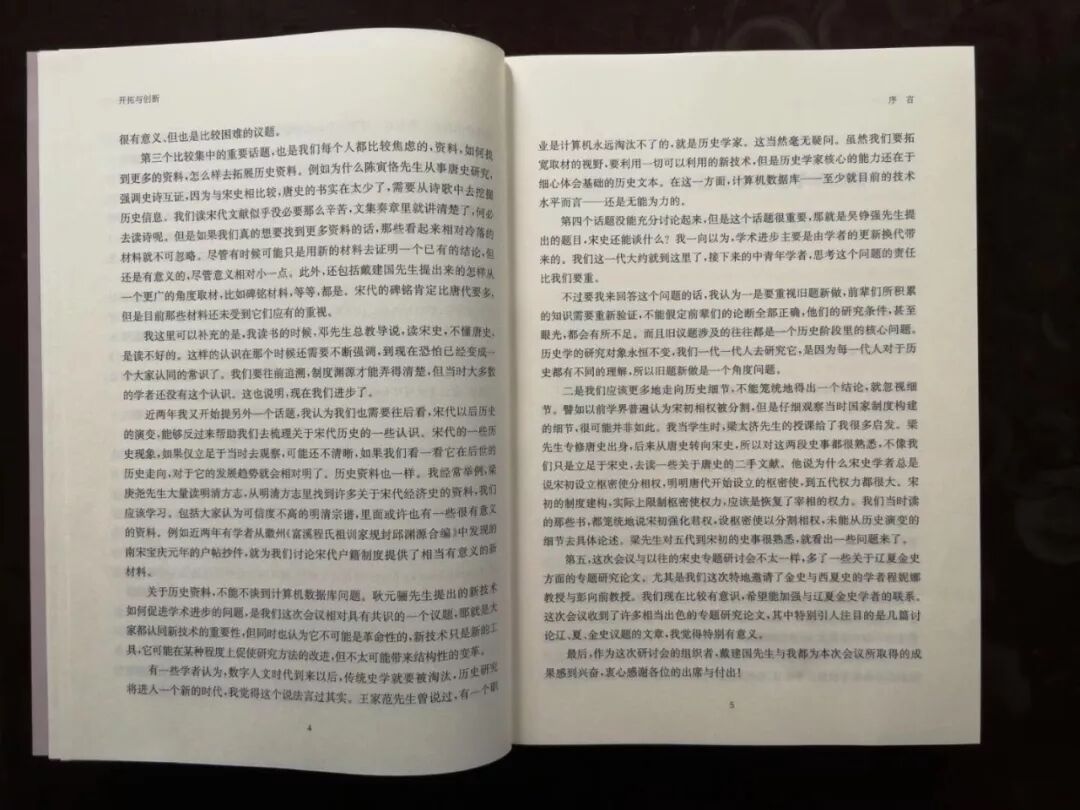 开拓与创新
很有意义、但也是比较困难的议题。
第三个比较集中的重要话题，也是我们每个人都比较焦虑的，资料，如何找
到更多的资料，怎么样去拓展历史资料。例如为什么陈寅恪先生从事唐史研究，
强调史诗互证，因为与宋史相比较，唐史的书实在太少了，需要从诗歌中去挖掘
历史信息。我们读宋代文献似乎没必要那么辛苦，文集奏章里就讲清楚了，何必
去读诗呢。但是如果我们真的想要找到更多资料的话，那些看起来相对冷落的
材料就不可忽略。尽管有时候可能只是用新的材料去证明一个已有的结论，但
还是有意义的，尽管意义相对小一点。此外，还包括戴建国先生提出来的怎样从
一个更广的角度取材，比如碑铭材料，等等，都是。宋代的碑铭肯定比唐代要多，
但是目前那些材料还未受到它们应有的重视。
我这里可以补充的是，我读书的时候，邓先生总教导说，读宋史，不懂唐史，
是读不好的。这样的认识在那个时候还需要不断强调，到现在恐怕已经变成一
个大家认同的常识了。我们要往前追溯，制度渊源才能弄得清楚，但当时大多数
的学者还没有这个认识。这也说明，现在我们进步了。
近两年我又开始提另外一个话题，我认为我们也需要往后看，宋代以后历史
的演变，能够反过来帮助我们去梳理关于宋代历史的一些认识。宋代的一些历
史现象，如果仅立足于当时去观察，可能还不清晰，如果我们看一看它在后世的
历史走向，对于它的发展趋势就会相对明了。历史资料也一样。我经常举例，梁
庚尧先生大量读明清方志，从明清方志里找到许多关于宋代经济史的资料，我们
应该学习。包括大家认为可信度不高的明清宗谱，里面或许也有一些很有意义
的资料。例如近两年有学者从徽州《富溪程氏祖训家规封邱渊源合编》中发现的
南宋宝庆元年的户帖抄件，就为我们讨论宋代户籍制度提供了相当有意义的新
材料。
关于历史资料，不能不谈到计算机数据库问题。耿元骊先生提出的新技术
如何促进学术进步的问题，是我们这次会议相对具有共识的一个议题，那就是大
家都认同新技术的重要性，但同时也认为它不可能是革命性的，新技术只是新的工
具，它可能在某种程度上促使研究方法的改进，但不太可能带来结构性的变革。
有一些学者认为，数字人文时代到来以后，传统史学就要被淘汰，历史研究
将进入一个新的时代，我觉得这个说法言过其实。王家范先生曾说过，有一个职
4
序 言
业是计算机永远淘汰不了的，就是历史学家。这当然毫无疑问。虽然我们要拓
宽取材的视野，要利用一切可以利用的新技术，但是历史学家核心的能力还在于
细心体会基础的历史文本。在这一方面，计算机数据库——至少就目前的技术
水平而言——还是无能为力的。
第四个话题没能充分讨论起来，但是这个话题很重要，那就是吴铮强先生提
出的题目，宋史还能谈什么？我一向以为，学术进步主要是由学者的更新换代带
来的。我们这一代大约就到这里了，接下来的中青年学者，思考这个问题的责任
比我们要重。
不过要我来回答这个问题的话，我认为一是要重视旧题新做，前辈们所积累
的知识需要重新验证，不能假定前辈们的论断全部正确，他们的研究条件，甚至
眼光，都会有所不足。而且旧议题涉及的往往都是一个历史阶段里的核心问题。
历史学的研究对象永恒不变，我们一代一代人去研究它，是因为每一代人对于历
史都有不同的理解，所以旧题新做是一个角度问题。
二是我们应该更多地走向历史细节，不能笼统地得出一个结论，就忽视细
节。譬如以前学界普遍认为宋初相权被分割，但是仔细观察当时国家制度构建
的细节，很可能并非如此。我当学生时，梁太济先生的授课给了我很多启发。梁
先生专修唐史出身，后来从唐史转向宋史，所以对这两段史事都很熟悉，不像我
们只是立足于宋史，去读一些关于唐史的二手文献。他说为什么宋史学者总是
说宋初设立枢密使分相权，明明唐代开始设立的枢密使，到五代权力都很大。宋
初的制度建构，实际上限制枢密使权力，应该是恢复了宰相的权力。我们当时读
的那些书，都笼统地说宋初强化君权，设枢密使以分割相权，未能从历史演变的
细节去具体论述。梁先生对五代到宋初的史事很熟悉，就看出一些问题来了。
第五，这次会议与以往的宋史专题研讨会不太一样，多了一些关于辽夏金史
方面的专题研究论文。尤其是我们这次特地邀请了金史与西夏史的学者程妮娜
教授与彭向前教授。我们现在比较有意识，希望能加强与辽夏金史学者的联系。
这次会议收到了许多相当出色的专题研究论文，其中特别引人注目的是几篇讨
论辽、夏、金史议题的文章，我觉得特别有意义。
最后，作为这次研讨会的组织者，戴建国先生与我都为本次会议所取得的成
果感到兴奋，衷心感谢各位的出席与付出！
5